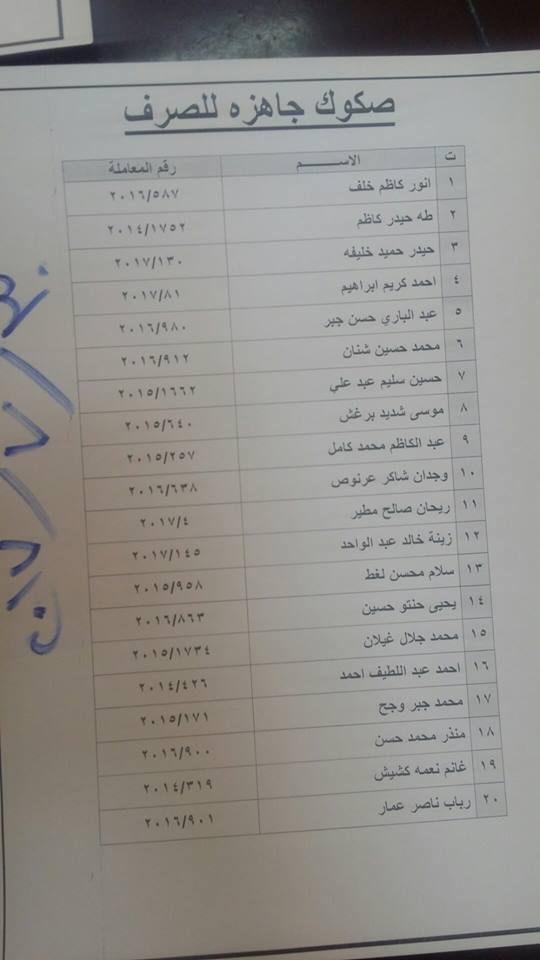 صكوك جاهزه للصرف
ت الاســـــم رقم المعاملة
١ انور كاظم خلف ٢٠١٦/٥٨٧
٢ طه حيدر كاظم ٢٠١٤/١٧٥٢
٣ حيدر حميد خليفه ٢٠١٧/١٣٠
٤ احمد كريم ابراهيم ٢٠١٧/٨١
٥ عبد الباري حسن جبر ٢٠١٦/٩٨٠
٦ محمد حسين شنان ٢٠١٦/٩١٢
٧ حسين سليم عبد علي ٢٠١٥/١٦٦٢
٨ موسى شديد برغش ٢٠١٥/٦٤٠
٩ عبد الكاظم محمد كامل ٢٠١٥/٢٥٧
١٠ وجدان شاكر عرنوص ٢٠١٦/٦٣٨
١١ ريحان صالح مطير ٢٠١٧/٤
١٢ زينة خالد عبد الواحد ٢٠١٧/١٤٥
١٣ سلام محسن لغط ٢٠١٥/٩٥٨
١٤ يحيى حنتو حسين ٢٠١٦/٨٦٣
١٥ محمد جلال غيلان ٢٠١٥/١٧٣٤
١٦ احمد عبد اللطيف احمد ٢٠١٤/٤٢٦
١٧ محمد جبر وجح ٢٠١٥/١٧١
١٨ منذر محمد حسن ٢٠١٦/٩٠٠
١٩ غانم نعمه كشيش ٢٠١٤/٣١٩
٢٠ رباب ناصر عمار ٢٠١٦/٩٠١